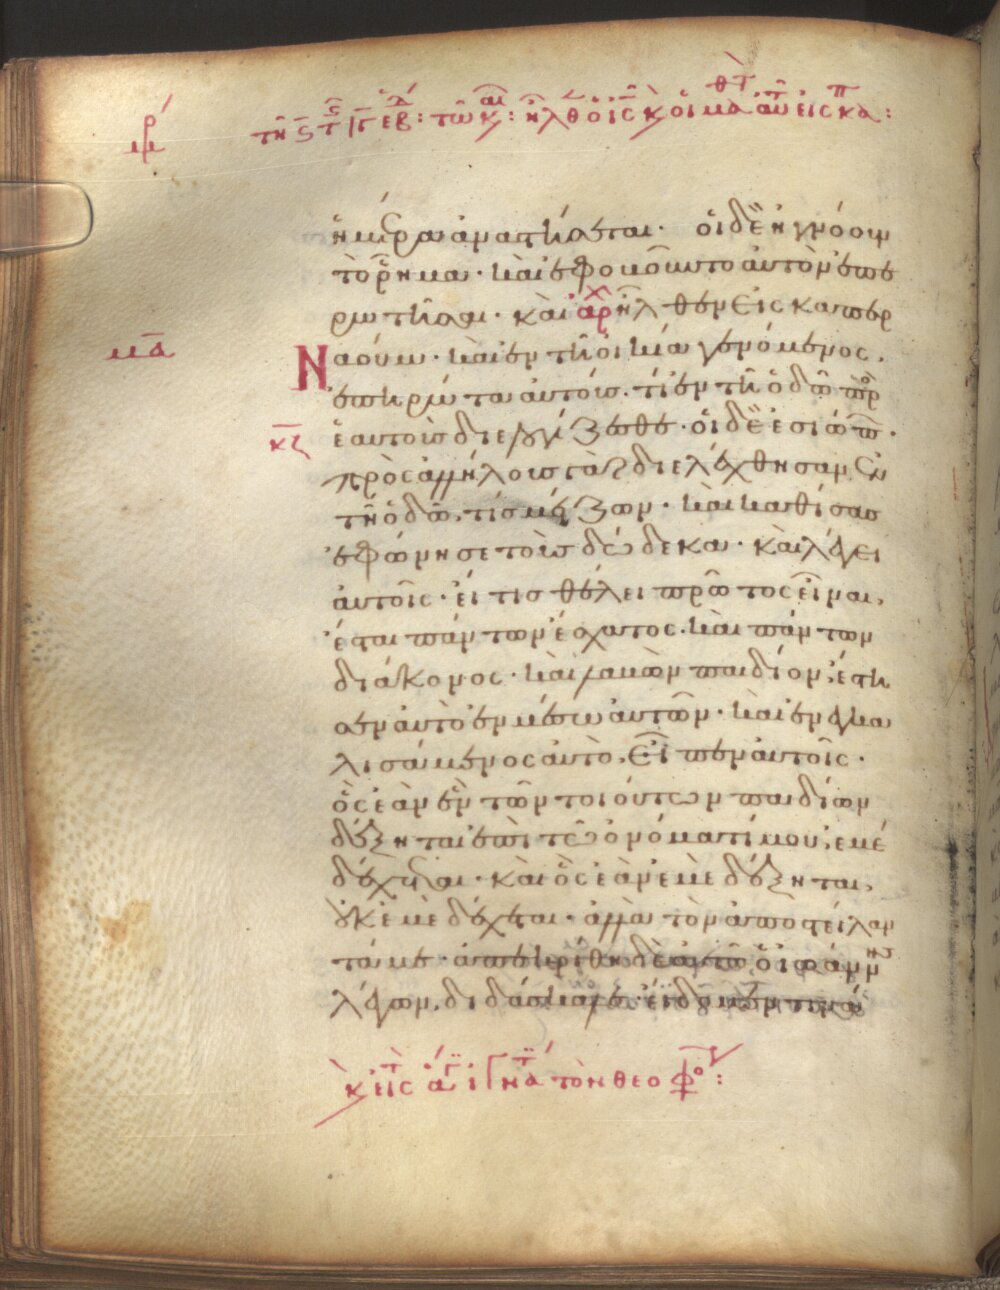 μρ
τῆ ς̄ τ ιγ ἑβδ: τῶ καιρ: ἦλθ ὁ ις κ οἱ μαθτ αὐτ εἰς καπ:
ἡμέρα ἀναστήσεται· οἱ δὲ ἠγνόουν
τὸ ῥῆμα· καὶ ἐφοβοῦντο αὐτὸν ἐπε
ρωτῆσαι· καὶ ἀρχ ἦλθεν εἰς καπερ
μα
Ναούμ· καὶ ἐν τῆ οἰκία γενόμενος,
ἐπηρώτα αὐτούς· τί ἐν τῆ ὁδῶ πρ
κζ
ἑαυτοὺς διελογίζεσθε· οἱ δὲ ἐσιώπ·
πρὸς ἀλλήλους γὰρ διελέχθησαν ἐν
τῆ ὁδῶ, τίς μείζων· καὶ καθίσας
ἐφώνησε τοὺς δώδεκα· καὶ λέγει
αὐτοῖς· εἴ τις θέλει πρῶτος εἶναι,
ἔσται πάντων ἔσχατος· καὶ πάντων
διάκονος· καὶ λαβὼν παιδίον, ἔστη
σεν αὐτὸ ἐν μέσω αὐτῶν· καὶ ἐναγκα
λισάμενος αὐτὸ, εἶπεν αὐτοῖς·
ὃς ἐὰν ἓν τῶν τοιούτων παιδίων
δέξηται ἐπὶ τῶ ὀνόματί μου, ἐμὲ
δέχεται· καὶ ὃς ἐὰν ἐμὲ δέξηται,
οὐκ ἐμὲ δέχεται· ἀλλὰ τὸν ἀποστείλαν
τά με· ἀπεκρίθη δὲ αὐτῶ ὁ ἰωάννης
λέγων, διδάσκαλε· εἴδομέν τινα
κ εἰς τ ἁγι ἰγνατ τὸν θεοφο: